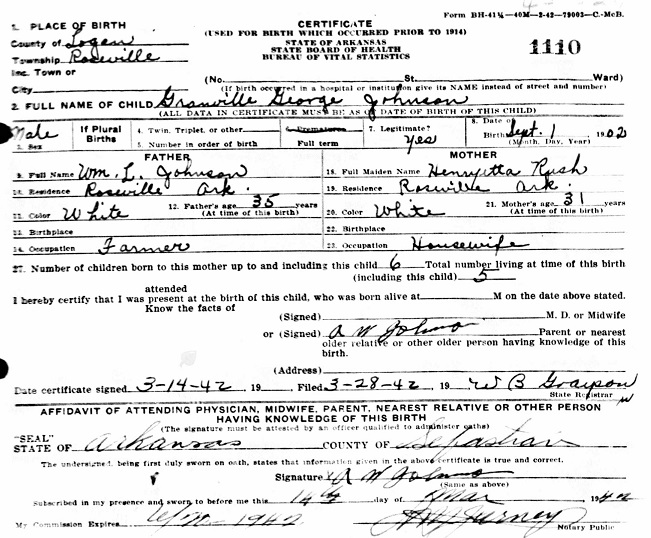 Form BH-41¼-40M-2-42-79003-C.-McB.
1. PLACE OF BIRTH
County of Logan
Township Roseville
Inc. Town or
City
CERTIFICATE
(USED FOR BIRTH WHICH OCCURRED PRIOR TO 1914)
STATE OF ARKANSAS
STATE BOARD OF HEALTH
BUREAU OF VITAL STATISTICS
1110
(No. St. Ward)
(If birth occurred in a hospital or institution give its NAME instead of street and number)
2. FULL NAME OF CHILD Granville George Johnson
(ALL DATA IN CERTIFICATE MUST BE AS OF DATE OF BIRTH OF THIS CHILD)
Male
3. Sex
If Plural Births
4. Twin, Triplet, or other
5. Number in order of birth
6. Premature
Full term
7. Legitimate?
Yes
8. Date of Birth Sept. 1 1902
(Month, Day, Year)
FATHER
9. Full Name Wm. L. Johnson
10. Residence Roseville Ark.
11. Color White
12. Father's age 35 years
(At time of this birth)
13. Birthplace
14. Occupation Farmer
MOTHER
18. Full Maiden Name Henryetta Rush
19. Residence Roseville Ark.
20. Color White
21. Mother's age 31 years
(At time of this birth)
22. Birthplace
23. Occupation Housewife
27. Number of children born to this mother up to and including this child 6 Total number living at time of this birth
(including this child) 5
attended
I hereby certify that I was present at the birth of this child, who was born alive at M on the date above stated.
Know the facts of
(Signed) M. D. or Midwife
or (Signed) A W Johns Parent or nearest
older relative or other older person having knowledge of this
birth.
(Address)
Date certificate signed 3-14-42, 19 Filed 3-28-42, 19 W B Grayson
State Registrar
AFFIDAVIT OF ATTENDING PHYSICIAN, MIDWIFE, PARENT, NEAREST RELATIVE OR OTHER PERSON
HAVING KNOWLEDGE OF THIS BIRTH
(The signature must be attested by an officer qualified to administer oaths)
"SEAL"
STATE OF Arkansas COUNTY OF Sebastian
The undersigned, being first duly sworn on oath, states that information given in the above certificate is true and correct.
Signature A W Johns
(Same as above)
Subscribed in my presence and sworn to before me this 14th day of Mar 1942
My Commission Expires 1942
Notary Public